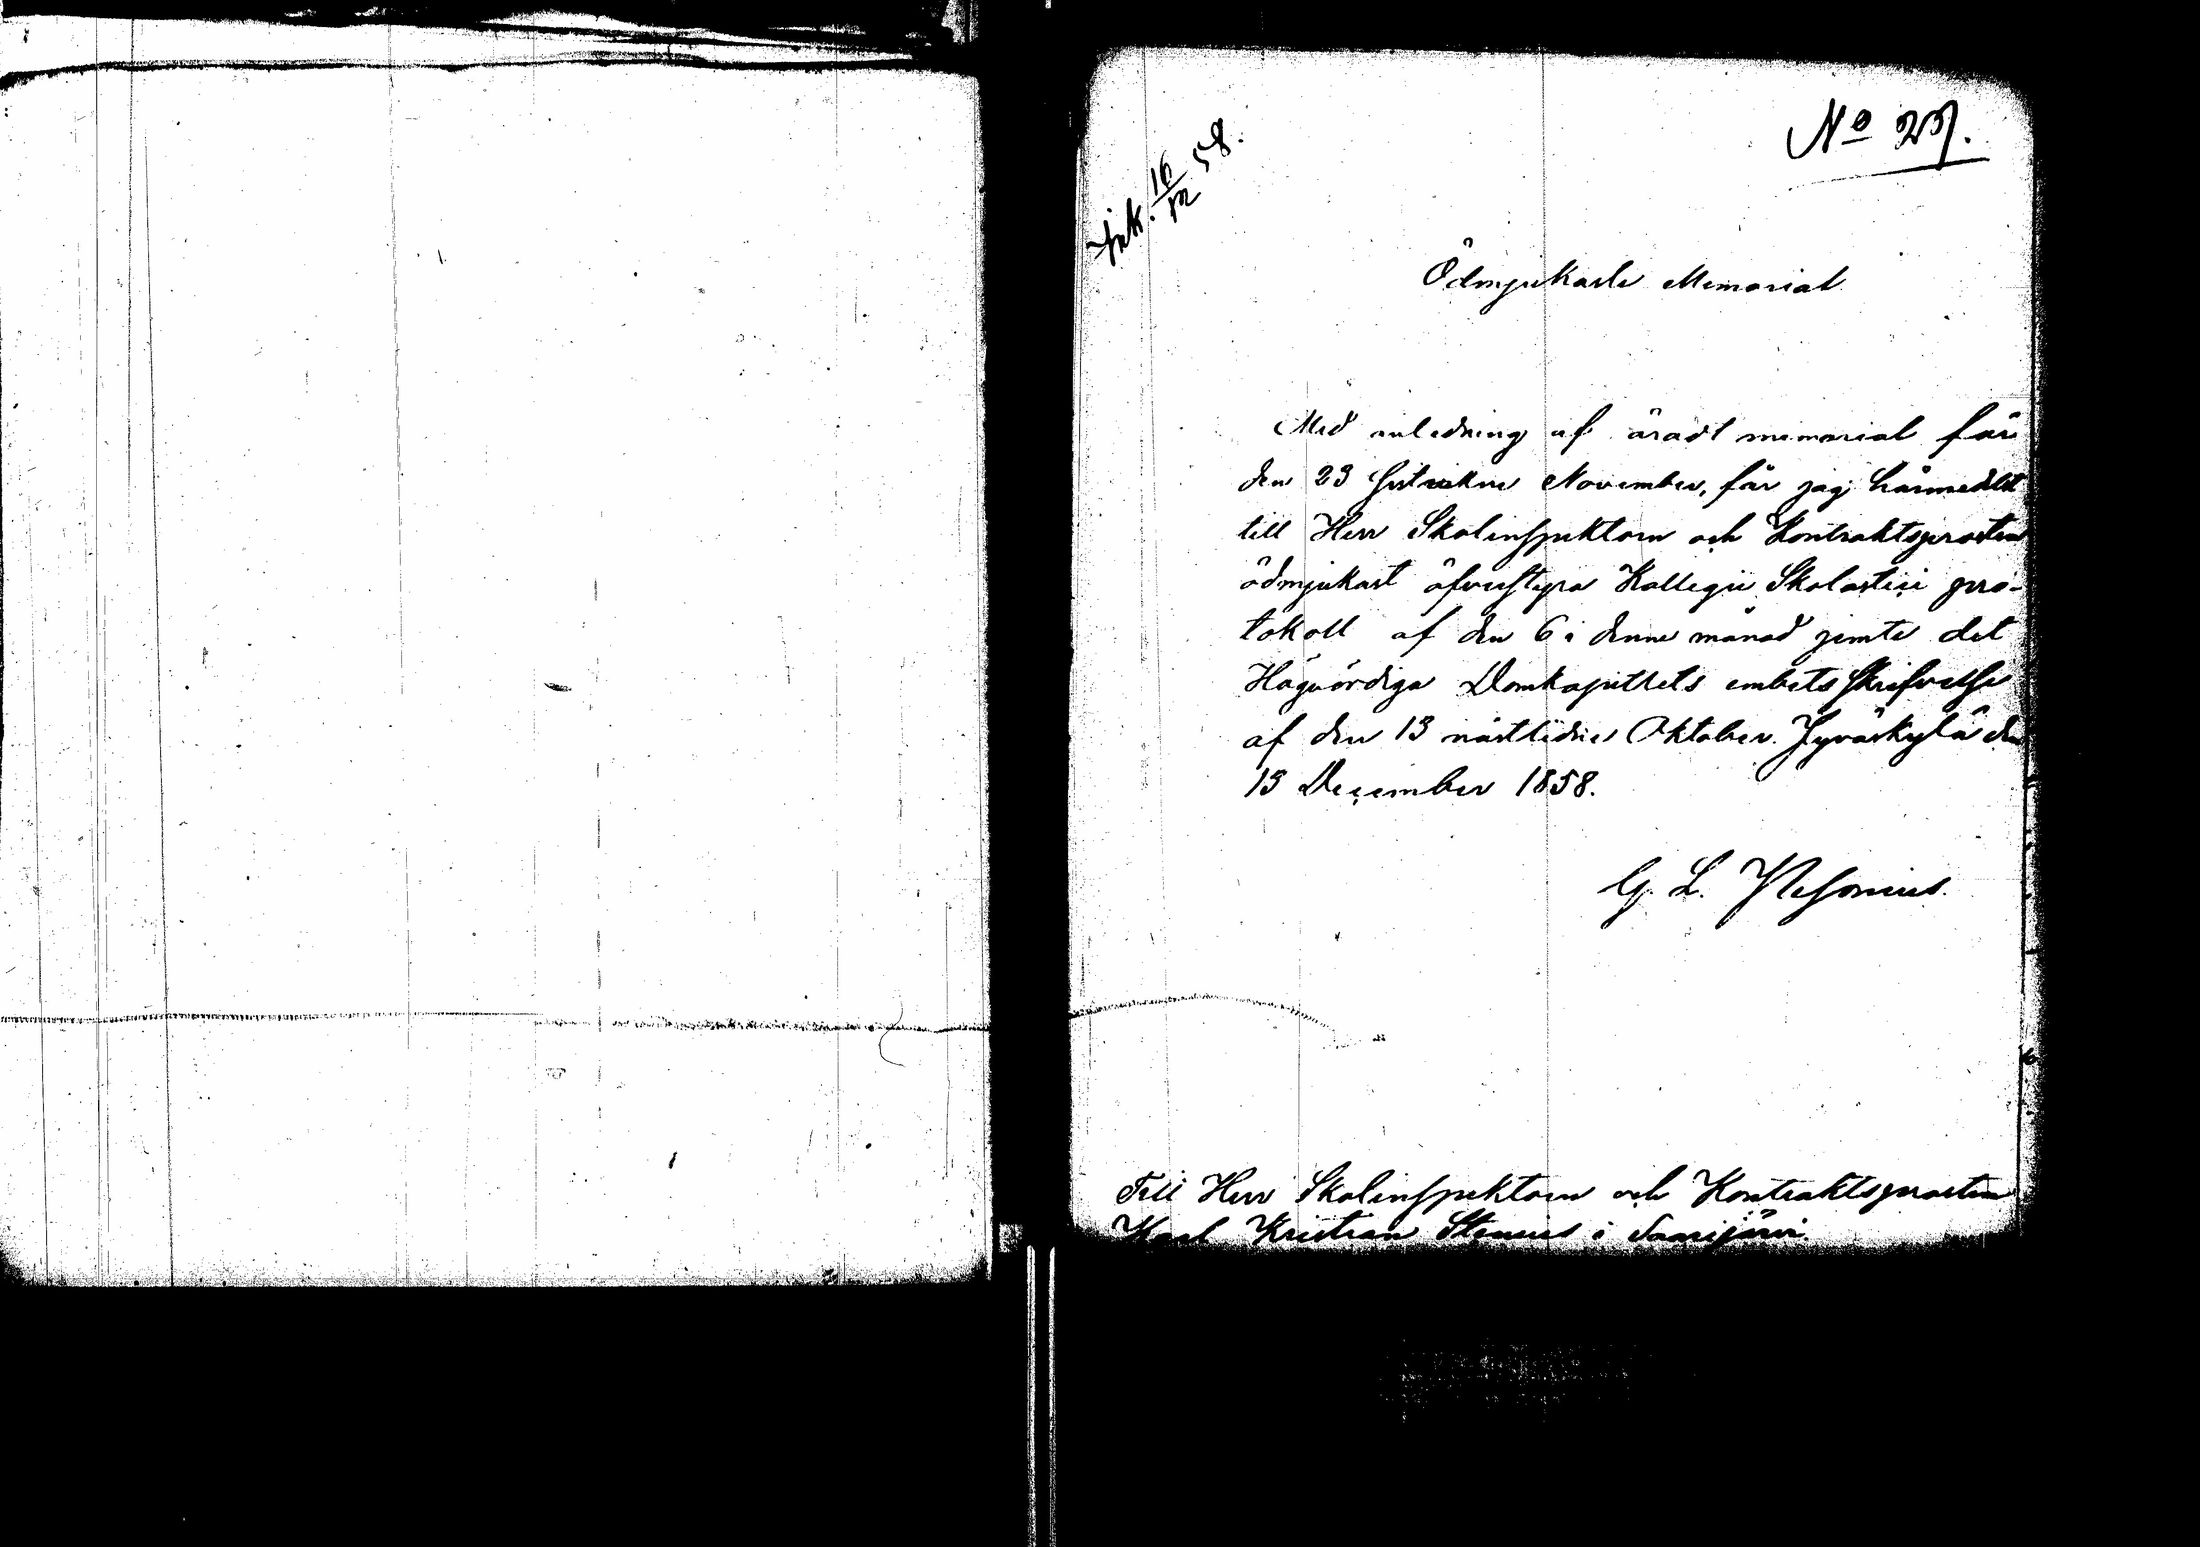 Ink. 16/12 58.
No 237.
Ödmjukaste Memorial
Med anledning af äradt memorial från
den 23 sistvikne November, får jag härmedelst
till Herr Skolinspektorn och Kontraktsprosten
ödmjukast öfverstyra Kollegii Skolastici pro-
tokoll af den 6 i denne månad jemte det
Högvördiga Domkapitlets embetsskrifvelse
af den 13 nästlidne Oktober. Jyväskylä den
13 December 1858.
G. L.
Till Herr Skolinspektorn och Kontraktsprosten
Karl Kristian Stenius i Saarijärvi.